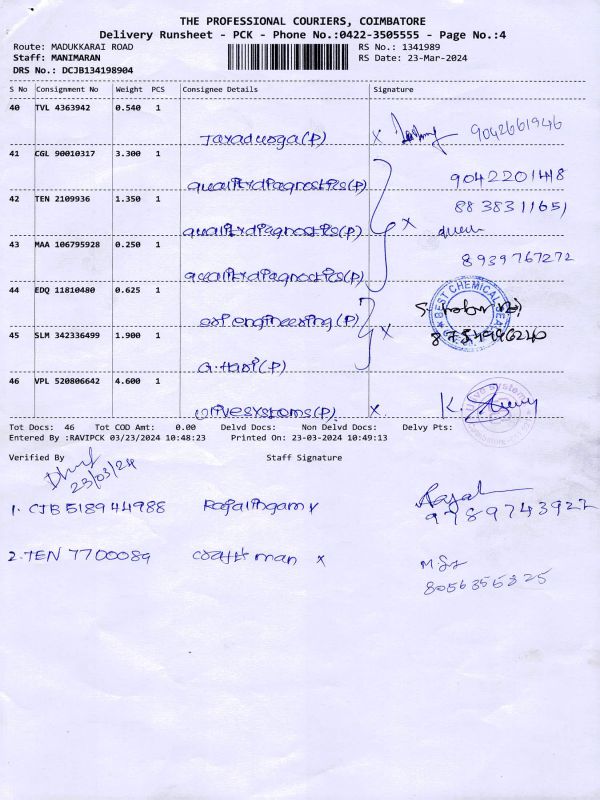 THE PROFESSIONAL COURIERS, COIMBATORE
Delivery Runsheet - PCK - Phone No.:0422-3505555 - Page No.:4
Route: MADUKKARAI ROAD RS No.: 1341989
Staff: MANIMARAN RS Date: 23-Mar-2024
DRS No.: DCJB134198904
S No Consignment No Weight PCS Consignee Details Signature
40 TVL 4363942 0.540 1
Jayadurga(P) x 9042661946
41 CGL 90010317 3.300 1
qualitydiagnostics(P) 9042201418
42 TEN 2109936 1.350 1 8838311651
qualitydiagnostics(P) x
43 MAA 106795928 0.250 1 8939767272
qualitydiagnostics(P)
44 EDQ 11810480 0.625 1 BEST CHEMICAL
sri engineering(P) x
45 SLM 342336499 1.900 1
G.Hari(P)
46 VPL 520806642 4.600 1
urivesystems(P) x.
Tot Docs: 46 Tot COD Amt: 0.00 Delvd Docs: Non Delvd Docs: Delvy Pts:
Entered By :RAVIPCK 03/23/2024 10:48:23 Printed On: 23-03-2024 10:49:13
Verified By Staff Signature
23/03/24
1. CJB 518944988 Rajalingam x 9789743922
2. TEN 7700089 craftsman x
8056355325